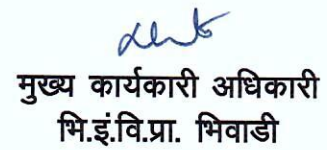 मुख्य कार्यकारी अधिकारी
भि.इं.वि.प्रा. भिवाडी